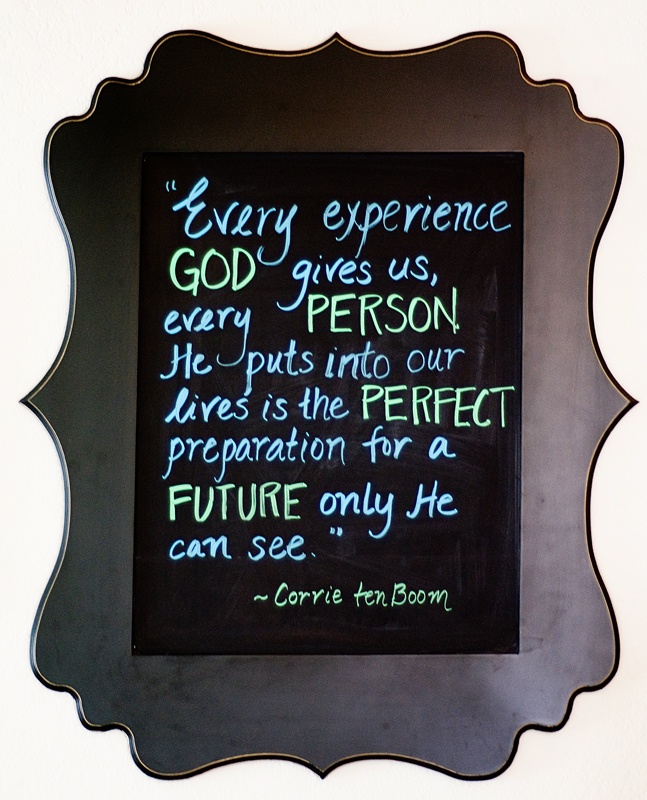 "Every experience
GOD gives us,
every PERSON
He puts into our
lives is the PERFECT
preparation for a
FUTURE only He
can see."
~ Corrie ten Boom